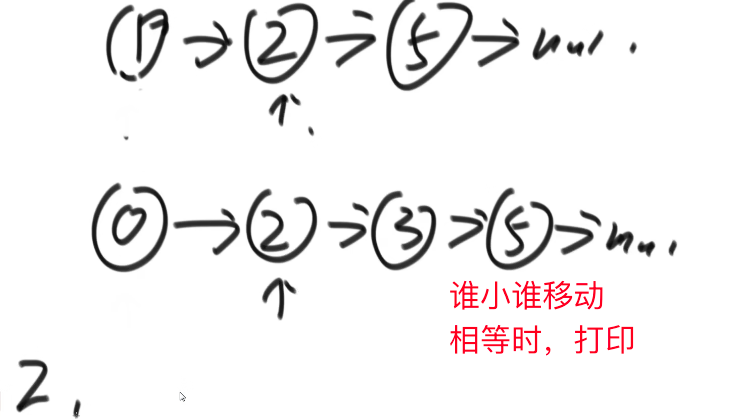 1 → 2 → 5 → nul.
↑
0 → 2 → 3 → 5 → nul.
↑
谁小谁移动
相等时，打印
2,